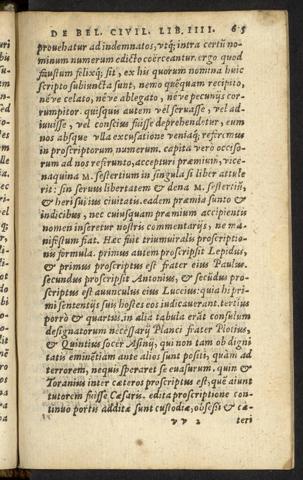 DE BEL. CIVIL. LIB. IIII. 65
prouehatur ad indemnatos, vtq; intra certũ no-
minum numerum edicto coërceantur. ergo quod
faustum felixq; sit, ex his quorum nomina huic
scripto subiuncta sunt, nemo quẽquam recipito,
néve celato, néve ablegato, néve pecunijs cor-
rumpitor. quisquis autem vel seruasse, vel ad-
iuuisse, vel conscius fuisse deprehendetur, eum
nos absque vlla excusatione veniaq; referemus
in proscriptorum numerum. capita verò occiso-
rum ad nos referunto, accepturi præmium, vice-
naquina M. sestertium in singula si liber attule
rit: sin seruus libertatem & dena M. sestertiũ,
& heri sui ius ciuitatis. eadem præmia sunto &
indicibus, nec cuiusquam præmium accipientis
nomen inseretur nostris commentarijs, ne ma-
nifestum fiat. Hæc fuit triumuiralis proscriptio-
nis formula. primus autem proscripsit Lepidus,
& primus proscriptus est frater eius Paulus.
secundus proscripsit Antonius, & secũdus pro-
scriptus est auunculus eius Lucius: quia hi pri-
mi sententijs suis hostes eos iudicauerant. tertius
porrò & quartus, in alia tabula erãt consulum
designatorum necessarij Planci frater Plotius,
& Quintius socer Asinij, qui non tam ob digni
tatis eminẽtiam ante alios sunt positi, quàm ad
terrorem, nequis speraret se euasurum. quin &
Toranius inter cæteros proscriptus est, quẽ aiunt
tutorem fuisse Cæsaris. edita proscriptione con-
tinuo portis additæ sunt custodiæ, obsessi & cæ-
vv 2 teri